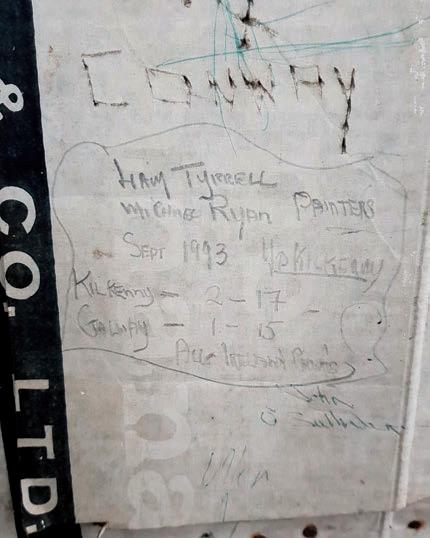 CONWAY
LIAM TYRRELL
MICHAEL RYAN PAINTERS
SEPT 1993 UP KILKENNY
KILKENNY – 2 – 17
GALWAY – 1 – 15
ALL IRELAND
John
O Sullivan
& CO. LTD.